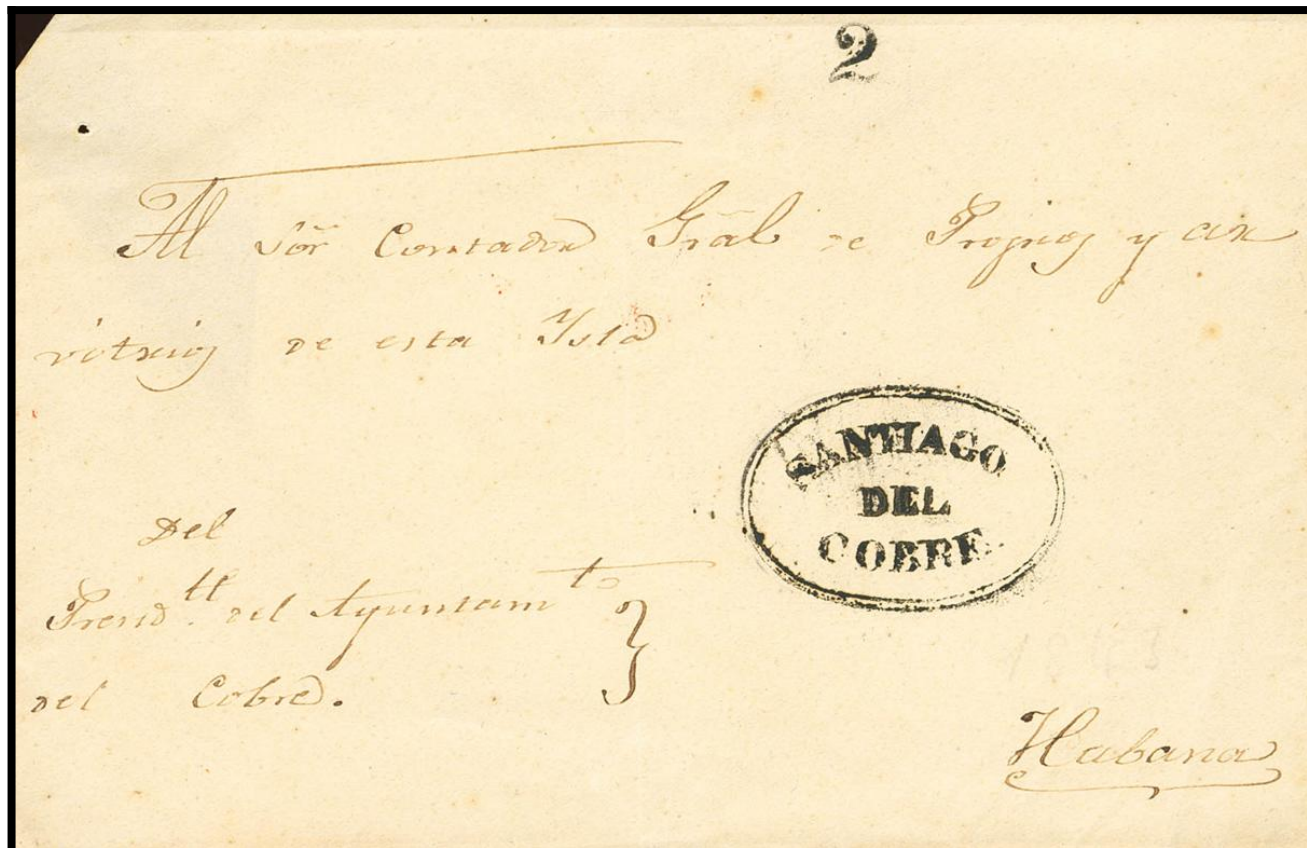 2
Al Sõr Contador Grãl de Propios y ar
vitrios de esta Ysla
SANTIAGO
DEL
COBRE
Del
Presid.te del Ayuntam.to
del Cobre.
Habana